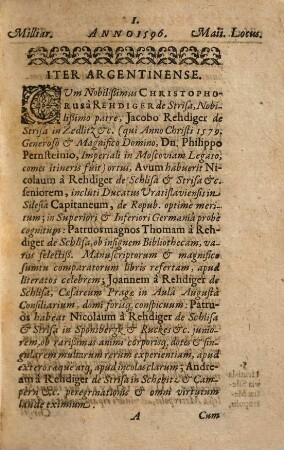 1.
Milliar. ANNO 1596. Maii. Locus.
ITER ARGENTINENSE.
CUm Nobilissimus CHRISTOPHO-
RUS à REHDIGER de Strisa, Nobi-
lissimo patre, Jacobo Rehdiger de
Strisa in Zedlitz &c. (qui Anno Christi 1579.
Generoso & Magnifico Domino, Dn. Philippo
Pernsteinio, Imperiali in Moscoviam Legato,
comes itineris fuit) ortus, Avum habuerit Ni-
colaum à Rehdiger de Schlisa & Strisa &c.
seniorem, incluti Ducatus Vratislaviensis in
Silesia Capitaneum, de Repub. optime meri-
tum; in Superiori & Inferiori Germania probè
cognitum: Patruos magnos Thomam à Rehdi-
ger de Schlisa, ob insignem Bibliothecam, va-
riis selectiss. Manuscriptorum & magnifico
sumtu comparatorum libris refertam, apud
literatos celebrem; Joannem à Rehdiger de
Schlisa, Caesareum Pragae in Aula Augusta
Consiliarium, domi forisq; conspicuum: Patru-
os habeat Nicolaum à Rehdiger de Schlisa
& Strisa in Sponsberg & Ruckes &c. junio-
rem, ob rarissimas animi corporisq; dotes & sin-
gularem multarum rerum experientiam, apud
exteros aequè atq; apud incolas clarum; Andre-
am à Rehdiger de Strisa in Schebitz & Cam-
pern &c. peregrinatione & omni virtutum
laude eximium.
A Cum